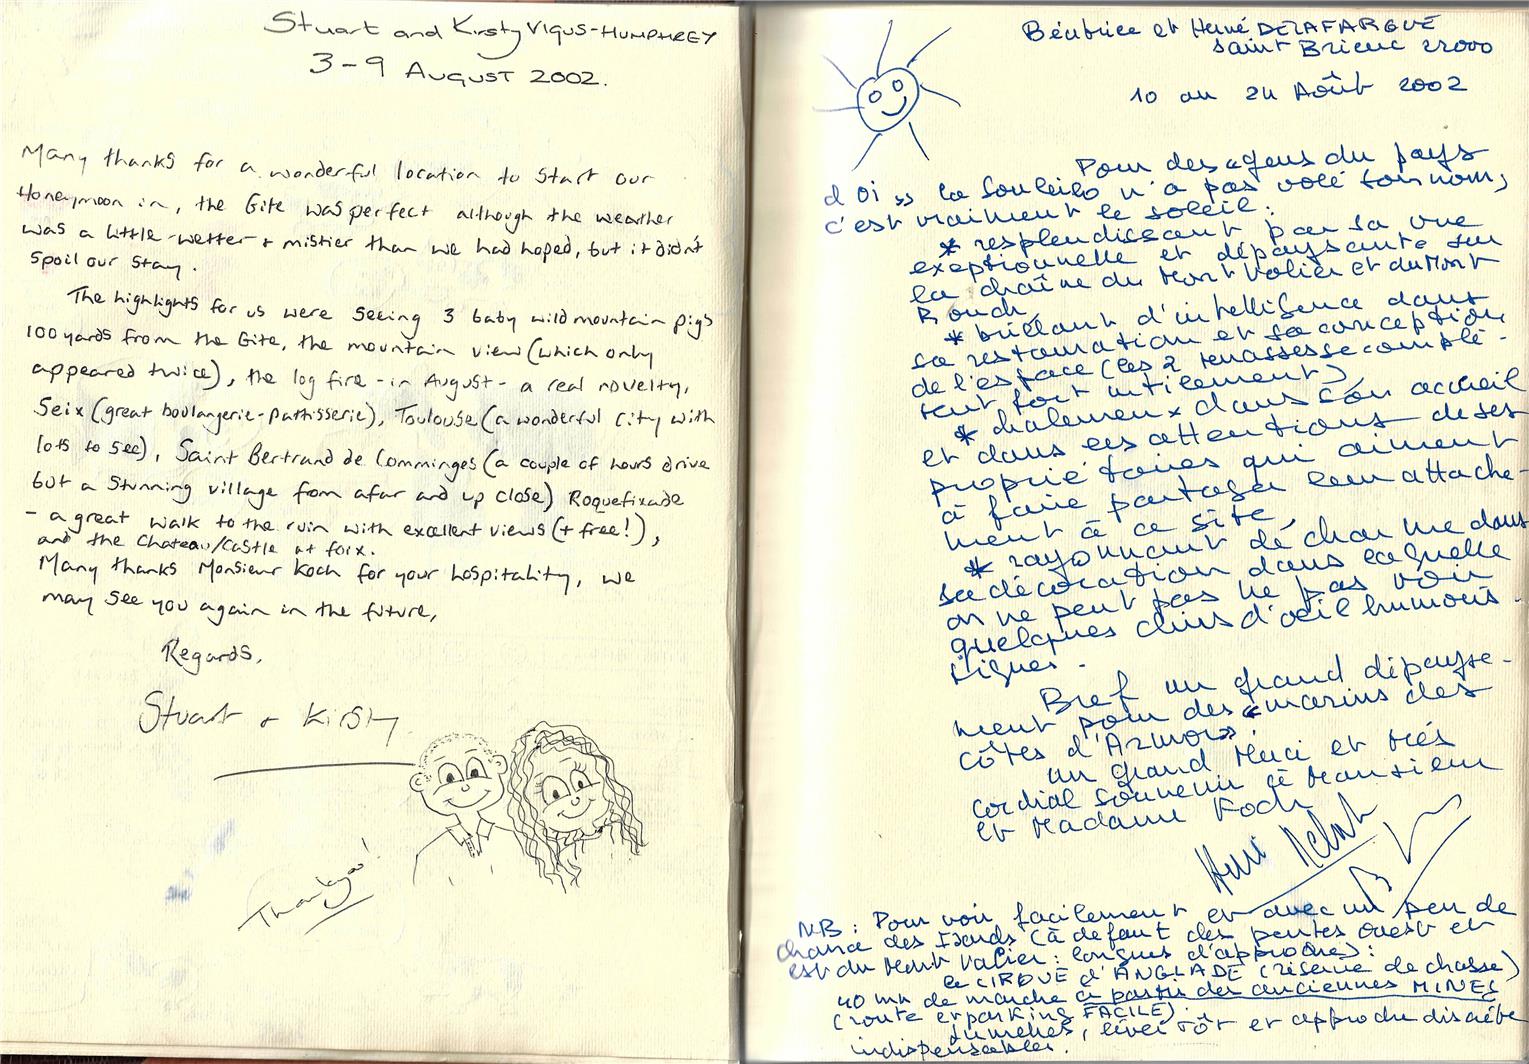 Stuart and Kirsty VIGUS-HUMPHREY
3-9 AUGUST 2002.
Many thanks for a wonderful location to start our
Honeymoon in, the Gite was perfect although the weather
was a little wetter + mistier than we had hoped, but it didn't
spoil our stay.
The highlights for us were seeing 3 baby wild mountain pigs
100 yards from the Gite, the mountain view (which only
appeared twice), the log fire - in August - a real novelty,
Seix (great boulangerie-pattisserie), Toulouse (a wonderful city with
lots to see), Saint Bertrand de Comminges (a couple of hours drive
but a stunning village from afar and up close) Roquefixade
- a great walk to the ruin with excellent views (+ free!),
and the Chateau/Castle at foix.
Many thanks Monsieur Koch for your hospitality, we
may see you again in the future,
Regards,
Stuart + Kirsty.
Thankyou!
Béatrice et Hervé DELAFARGUE
Saint Brieuc 22000
10 au 24 Août 2002
Pour des "gens du pays
d'Oi", le Souleilo n'a pas volé son nom,
c'est vraiment le soleil :
* resplendissant par sa vue
exeptionnelle et dépaysante sur
la chaîne du Mont Valier et du Mont
Rouch,
* brillant d'intelligence dans
sa restauration et sa conception
de l'espace (les 2 terrasses se complè-
tent fort utilement)
* chaleureux dans son accueil
et dans les attentions de ses
propriétaires qui aiment
à faire partager leur attache-
ment à ce site,
* rayonnant de charme dans
sa décoration dans laquelle
on ne peut pas ne pas voir
quelques clins d'oeil humoris-
tiques.
Bref un grand dépayse-
ment pour des "marins des
côtes d'Armor".
un grand Merci et très
cordial souvenir à Monsieur
et Madame Koch
NB : Pour voir facilement et avec un peu de
chance des Isards (à defaut des pentes ouest et
est du Mont Valier : longues d'approche) :
le CIRQUE d'ANGLADE (réserve de chasse)
40 mn de marche à partir des anciennes MINES
(route et parking FACILE).
Jumelles, lever tôt et approche discrète
indispensables.